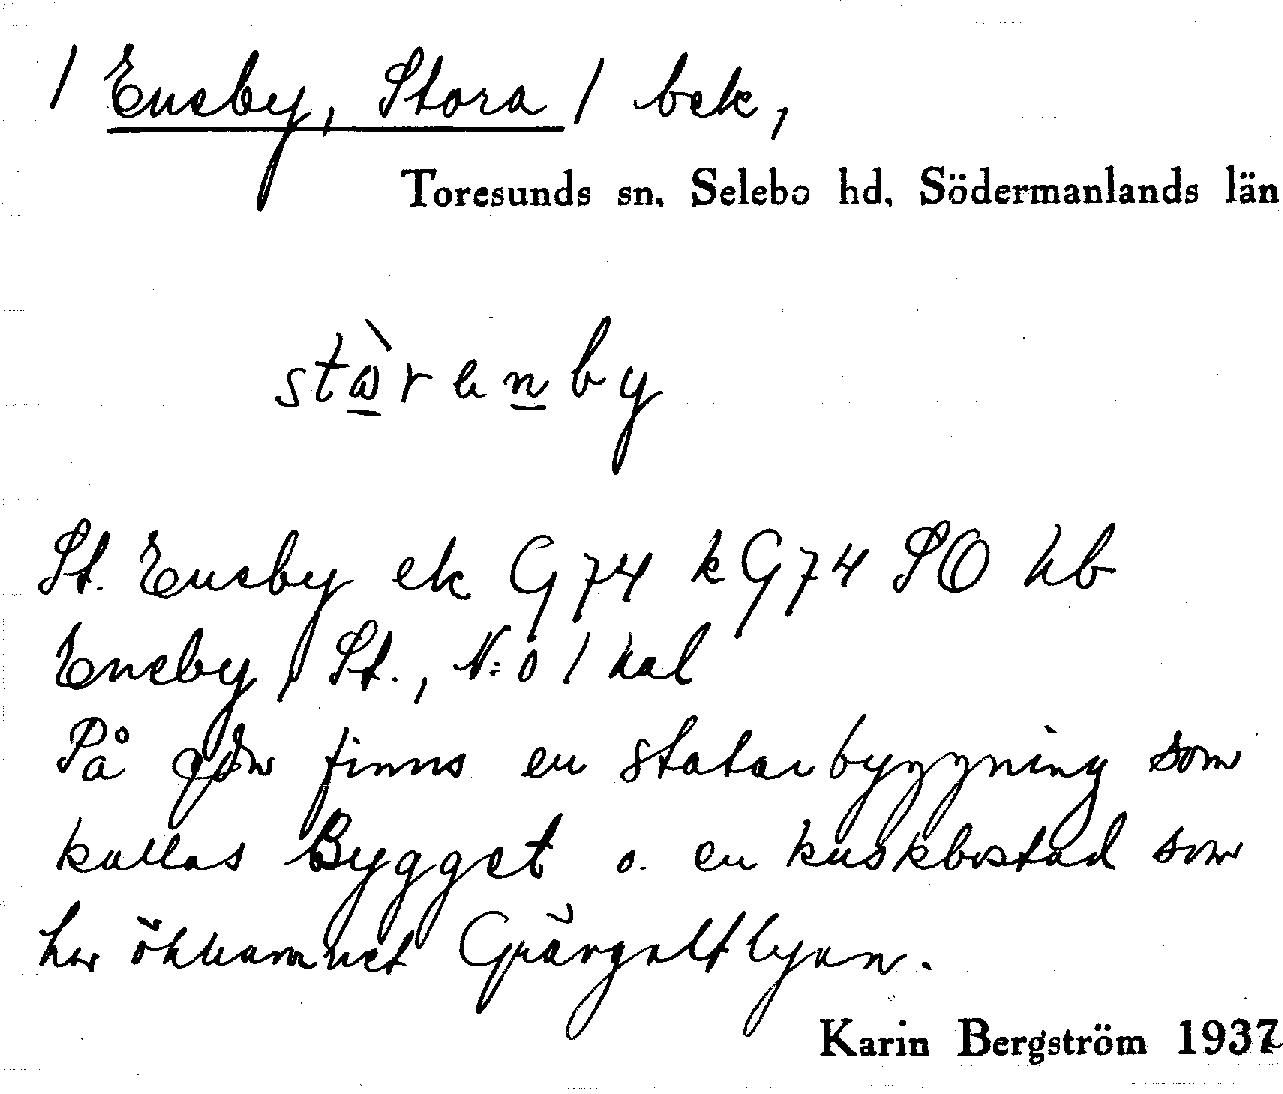 / Eneby, Stora / bek,
Toresunds sn. Selebo hd. Södermanlands län
St. Eneby ek G74 kG74 SO hb
Eneby / St., N:o 1 hal
På gdn finns en statarbyggning som
kallas Bygget o. en kuskbostad som
har öknamnet
Karin Bergström 1937